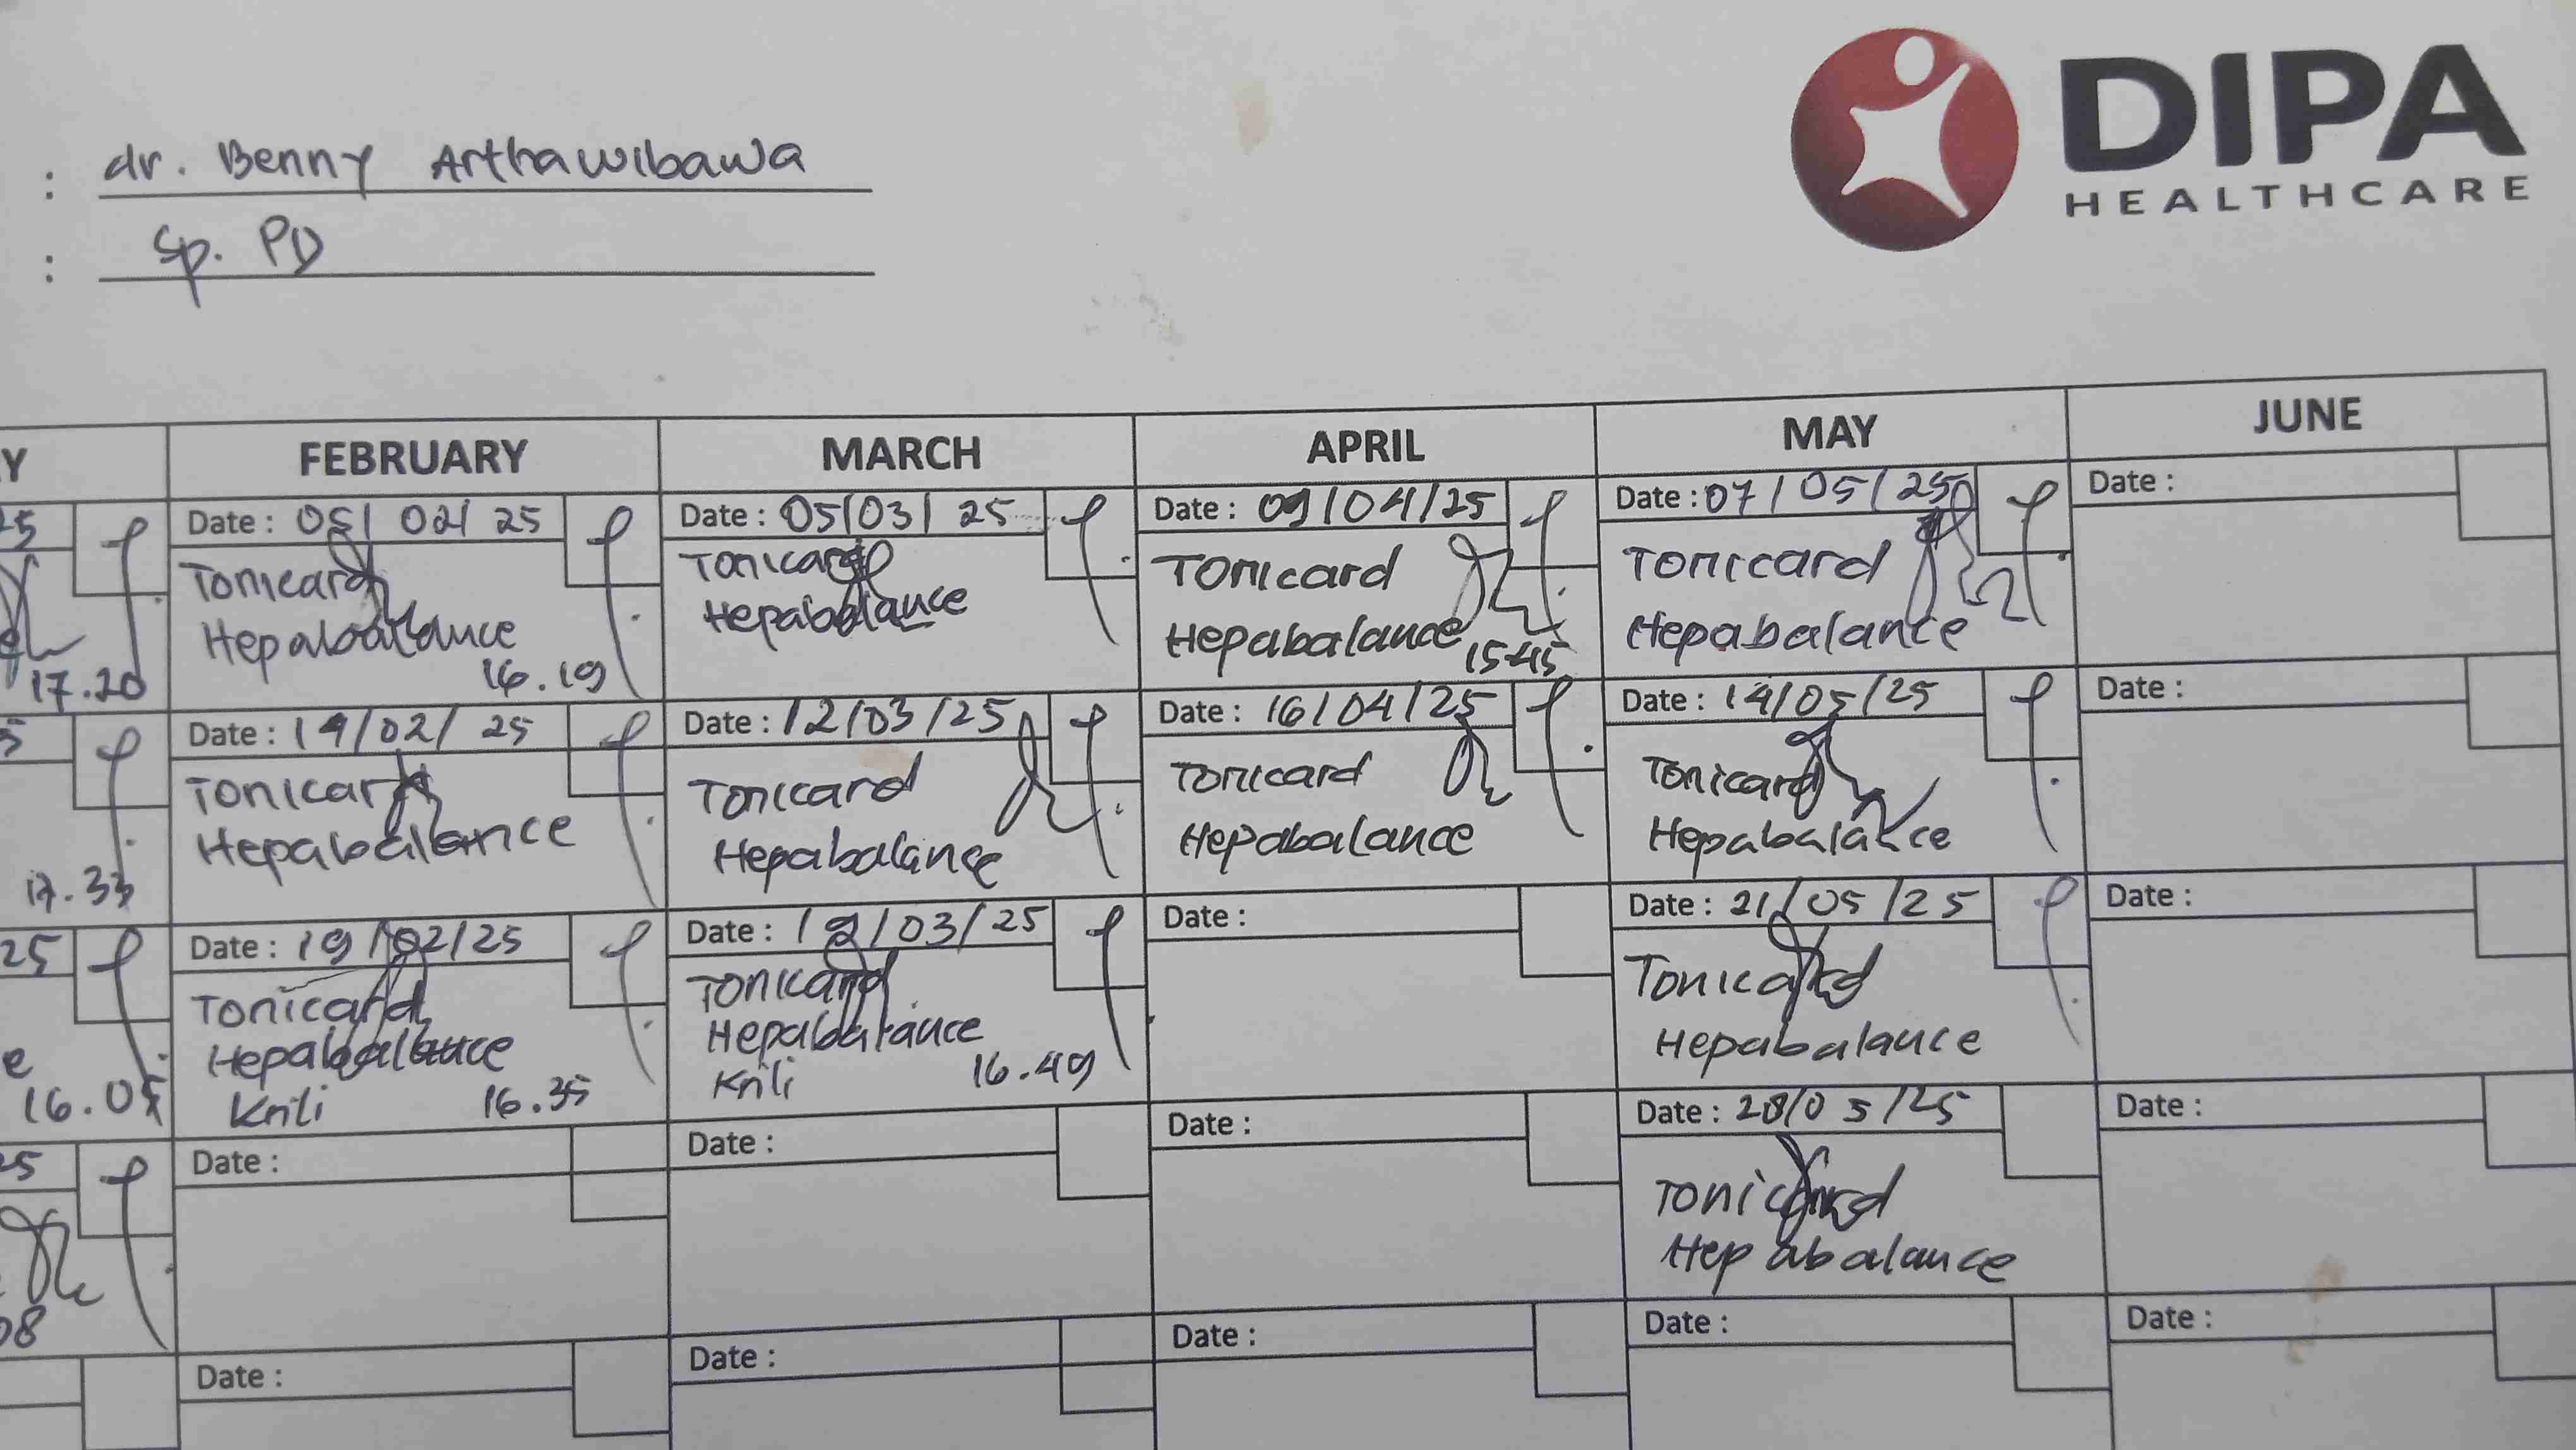 DIPA
HEALTHCARE
: dr. Benny Arthawibawa
: Sp. PD
Y FEBRUARY MARCH APRIL MAY JUNE
25 Date : 05/ 02/ 25 Date : 05/03/ 25 Date : 09/04/25 Date : 07/05/25 Date :
Tonicard Tonicard Tonicard Tonicard
Hepabalance Hepabalance Hepabalance Hepabalance
17.20 16.19 15.45
5 Date : 14/02/ 25 Date : 12/03/25 Date : 16/04/25 Date : 14/05/25 Date :
Tonicard Tonicard Tonicard Tonicard
Hepabalance Hepabalance Hepabalance Hepabalance
17.33
25 Date : 19/02/25 Date : 19/03/25 Date : Date : 21/05/25 Date :
Tonicard Tonicard Tonicard
e Hepabalance Hepabalance Hepabalance
16.05 Krili 16.35 Krili 16.49
25 Date : Date : Date : Date : 28/05/25 Date :
Tonicard
Hepabalance
08
Date : Date : Date : Date : Date :